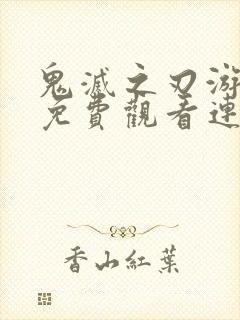 鬼滅之刃游
免費觀看連
香山紅葉